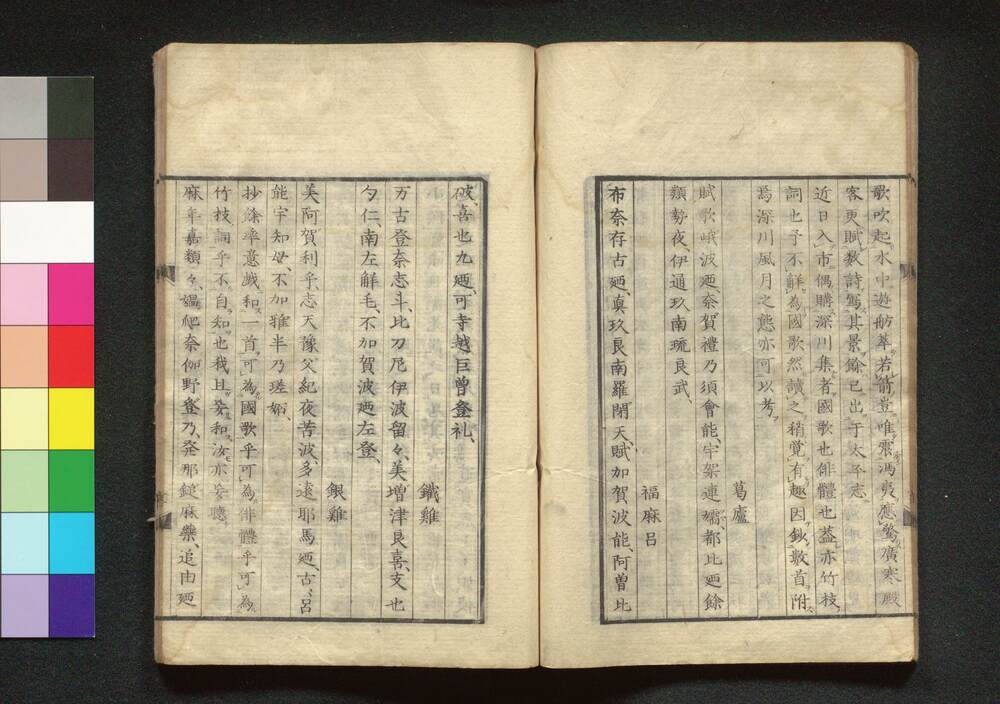 歌吹起水中遊舫萃若箭豈唯震馮夷應驚廣寒殿
客更賦数詩寫其景餘已出于太平志
近日入市偶購深川集者國歌也俳體也葢亦竹枝
詞也予不解為國歌然讀之稍覚有趣因鈔数首附
為深川風月之態亦可以考
葛廬
賦歌峨波廼奈賀禮乃須會能宇架連嬬都比廼餘
類勢夜伊通玖南琉良武
福麻呂
布奈存古廼真玖良南羅閇天賦加賀波能阿曽比
破喜也九廼可寺越巨曽登礼
鐵雞
万古登奈志斗比刀尼伊波留々美増津良喜支也
夕仁南左觧毛不加賀波廼左登
銀雞
美阿賀利乎志天豫父紀夜苦波多遠耶馬廼古呂
能宇知毋不加雅半乃瑳
抄餘率意戯和一首可為國歌乎可為俳體乎可為
竹枝詞乎不自知也我且妄和汝亦妄聴
麻年嘉類々媼爬奈伽野登乃発那鎚麻樂追由廼